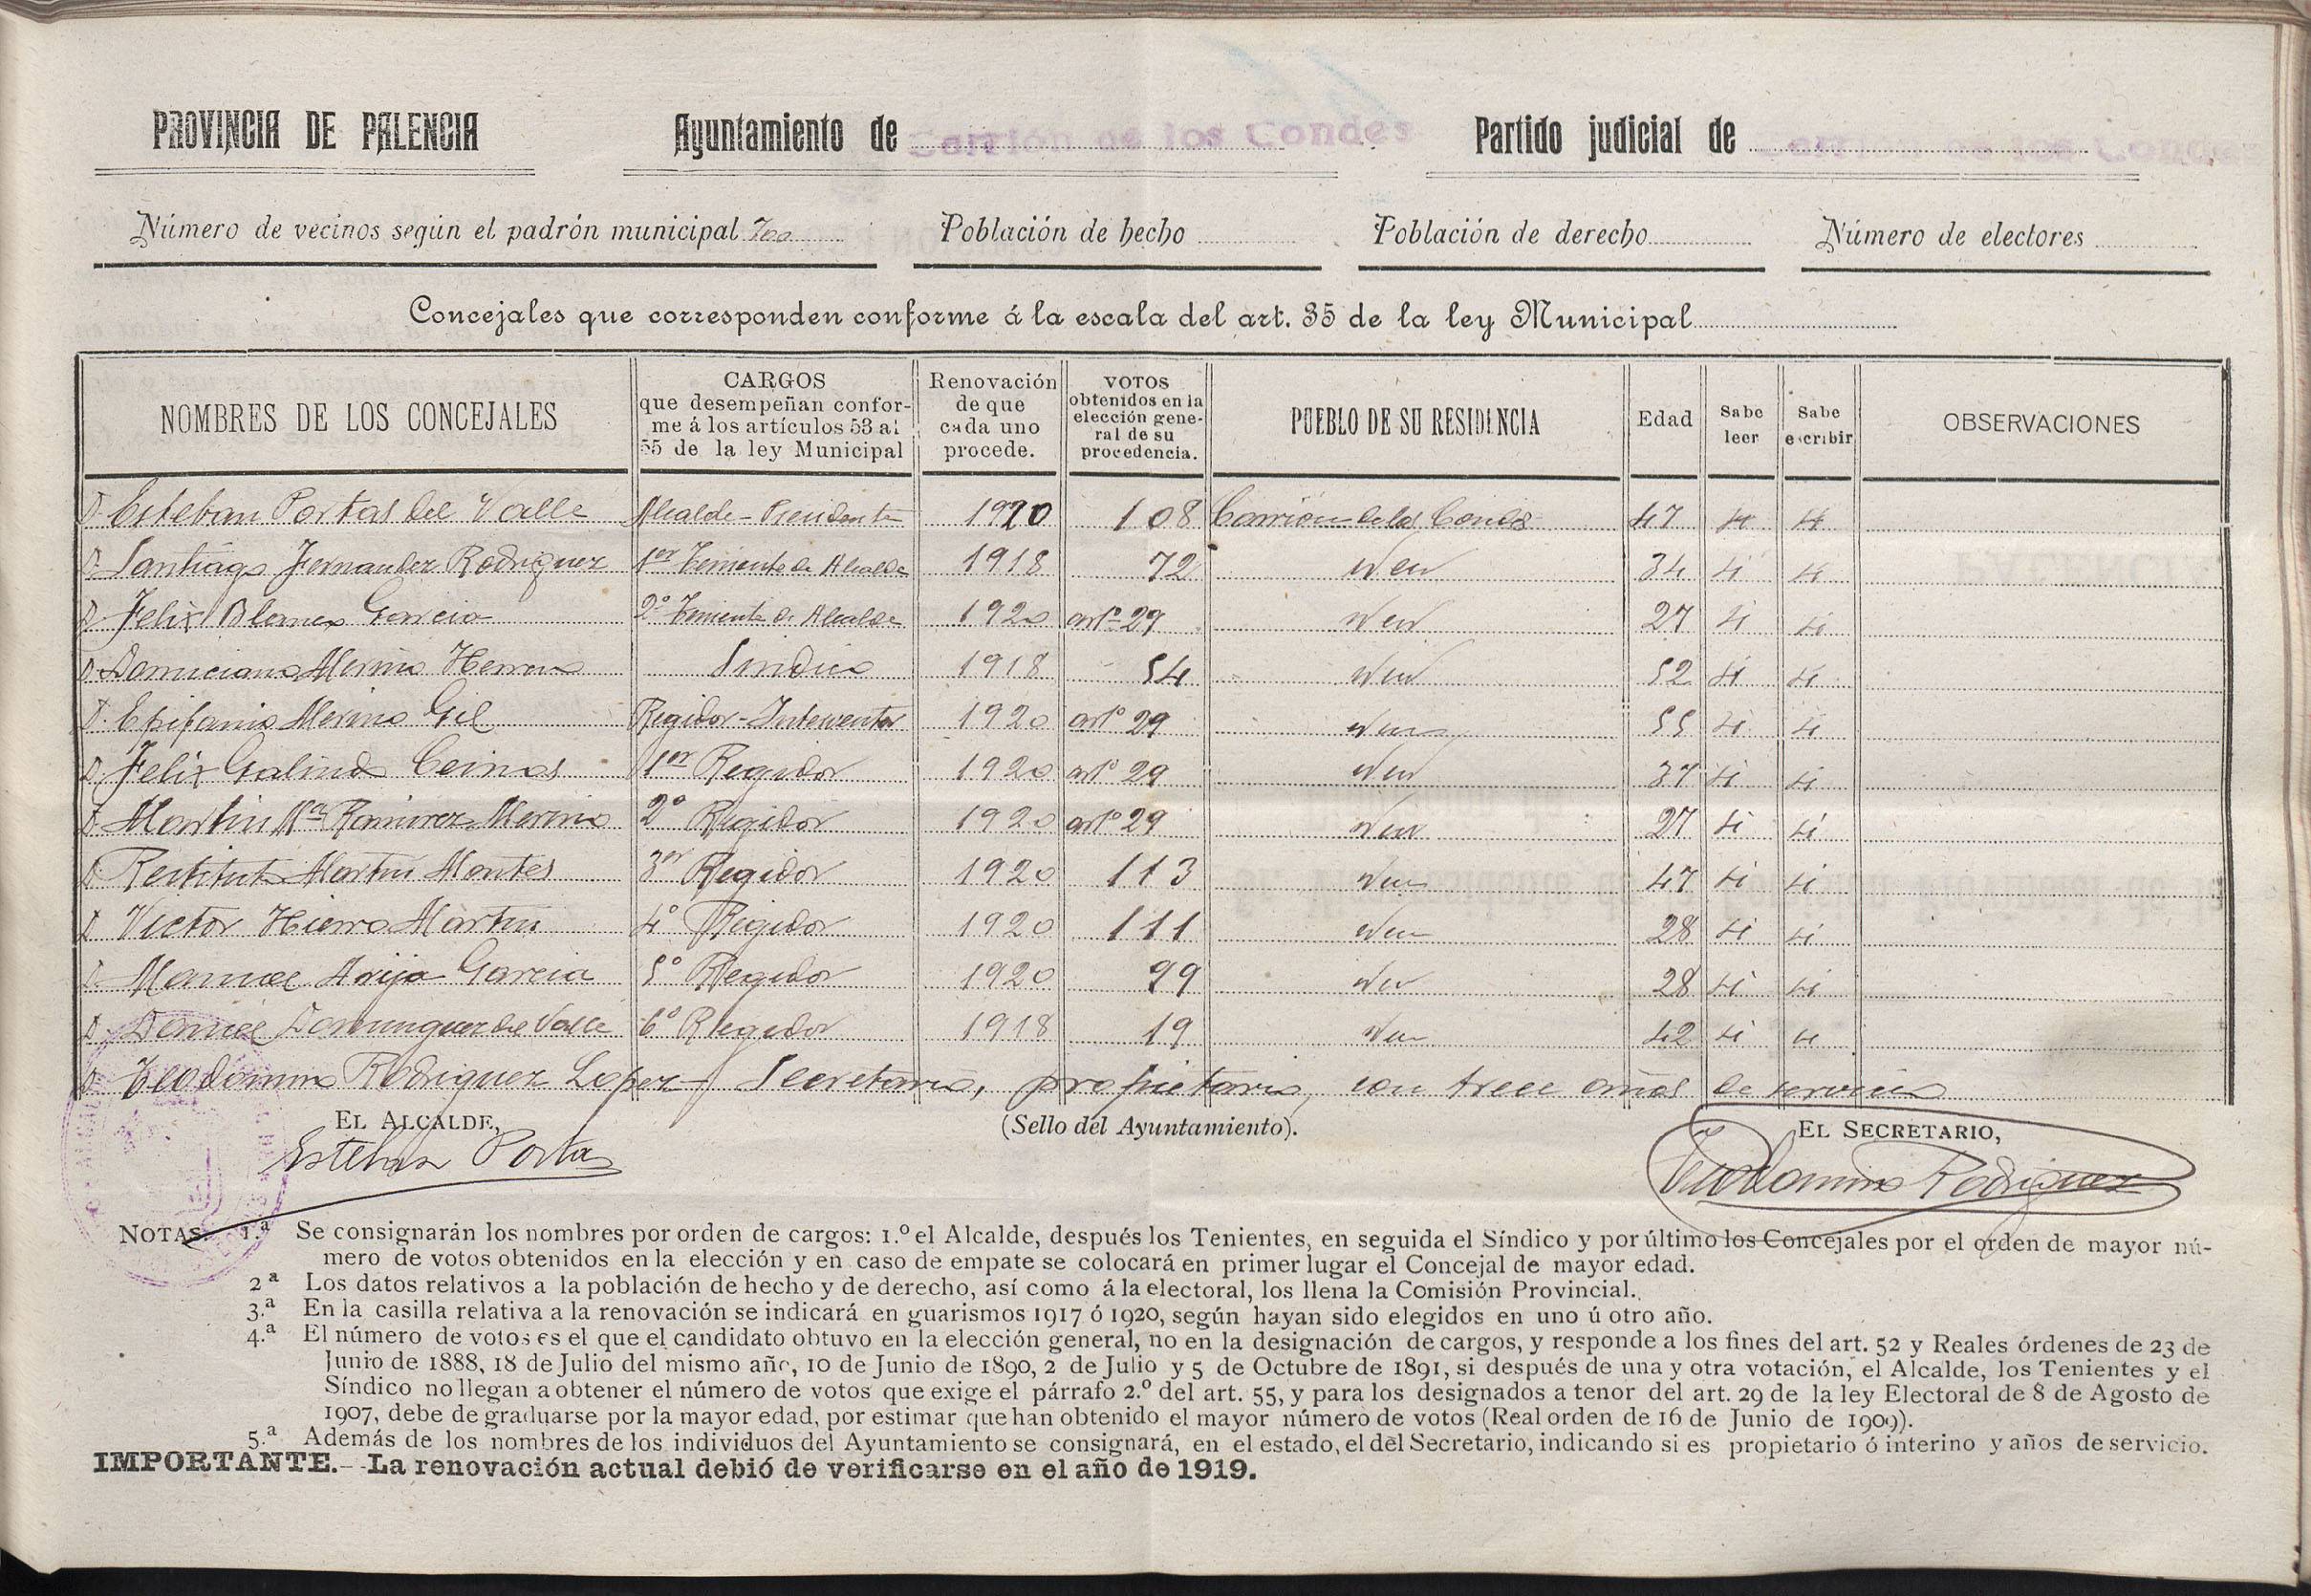 PROVINCIA DE PALENCIA Ayuntamiento de Carrión de los Condes Partido judicial de Carrión de los Condes
Número de vecinos según el padrón municipal 700 Población de hecho Población de derecho Número de electores
Concejales que corresponden conforme á la escala del art. 35 de la ley Municipal
NOMBRES DE LOS CONCEJALES CARGOS que desempeñan conforme á los artículos 53 al 55 de la ley Municipal Renovación de que cada uno procede. VOTOS obtenidos en la elección general de su procedencia. PUEBLO DE SU RESIDENCIA Edad Sabe leer Sabe escribir OBSERVACIONES
D. Esteban Portas del Valle Alcalde-Presidente 1920 108 Carrión de los Condes 47 si si
D. Santiago Fernandez Rodriguez 1er Teniente de Alcalde 1918 72 idem 34 si si
D. Felix Blanco Garcia 2º Teniente de Alcalde 1920 artº 29 idem 27 si si
D. Domiciano Merino Herrero Sindico 1918 54 idem 52 si si
D. Epifanio Merino Gil Regidor-Interventor 1920 artº 29 idem 55 si si
D. Felix Galindo Ceinos 1er Regidor 1920 artº 29 idem 37 si si
D. Martin Mª Ramirez Merino 2º Regidor 1920 artº 29 idem 27 si si
D. Restituto Martin Montes 3er Regidor 1920 113 idem 47 si si
D. Victor Hierro Martin 4º Regidor 1920 111 idem 28 si si
D. Manuel Arija Garcia 5º Regidor 1920 99 idem 28 si si
D. Daniel Dominguez del Valle 6º Regidor 1918 19 idem 42 si si
D. Teodomiro Rodriguez Lopez Secretario, propietario, con trece años de servicio
EL ALCALDE, (Sello del Ayuntamiento). EL SECRETARIO,
Esteban Portas Teodomiro Rodriguez
NOTAS. 1.ª Se consignarán los nombres por orden de cargos: 1.º el Alcalde, después los Tenientes, en seguida el Síndico y por último los Concejales por el orden de mayor nú-
mero de votos obtenidos en la elección y en caso de empate se colocará en primer lugar el Concejal de mayor edad.
2ª Los datos relativos a la población de hecho y de derecho, así como á la electoral, los llena la Comisión Provincial.
3.ª En la casilla relativa a la renovación se indicará en guarismos 1917 ó 1920, según hayan sido elegidos en uno ú otro año.
4.ª El número de votos es el que el candidato obtuvo en la elección general, no en la designación de cargos, y responde a los fines del art. 52 y Reales órdenes de 23 de
Junio de 1888, 18 de Julio del mismo año, 10 de Junio de 1890, 2 de Julio y 5 de Octubre de 1891, si después de una y otra votación, el Alcalde, los Tenientes y el
Síndico no llegan a obtener el número de votos que exige el párrafo 2.º del art. 55, y para los designados a tenor del art. 29 de la ley Electoral de 8 de Agosto de
1907, debe de graduarse por la mayor edad, por estimar que han obtenido el mayor número de votos (Real orden de 16 de Junio de 1909).
5.ª Además de los nombres de los individuos del Ayuntamiento se consignará, en el estado, el del Secretario, indicando si es propietario ó interino y años de servicio.
IMPORTANTE.- La renovación actual debió de verificarse en el año de 1919.